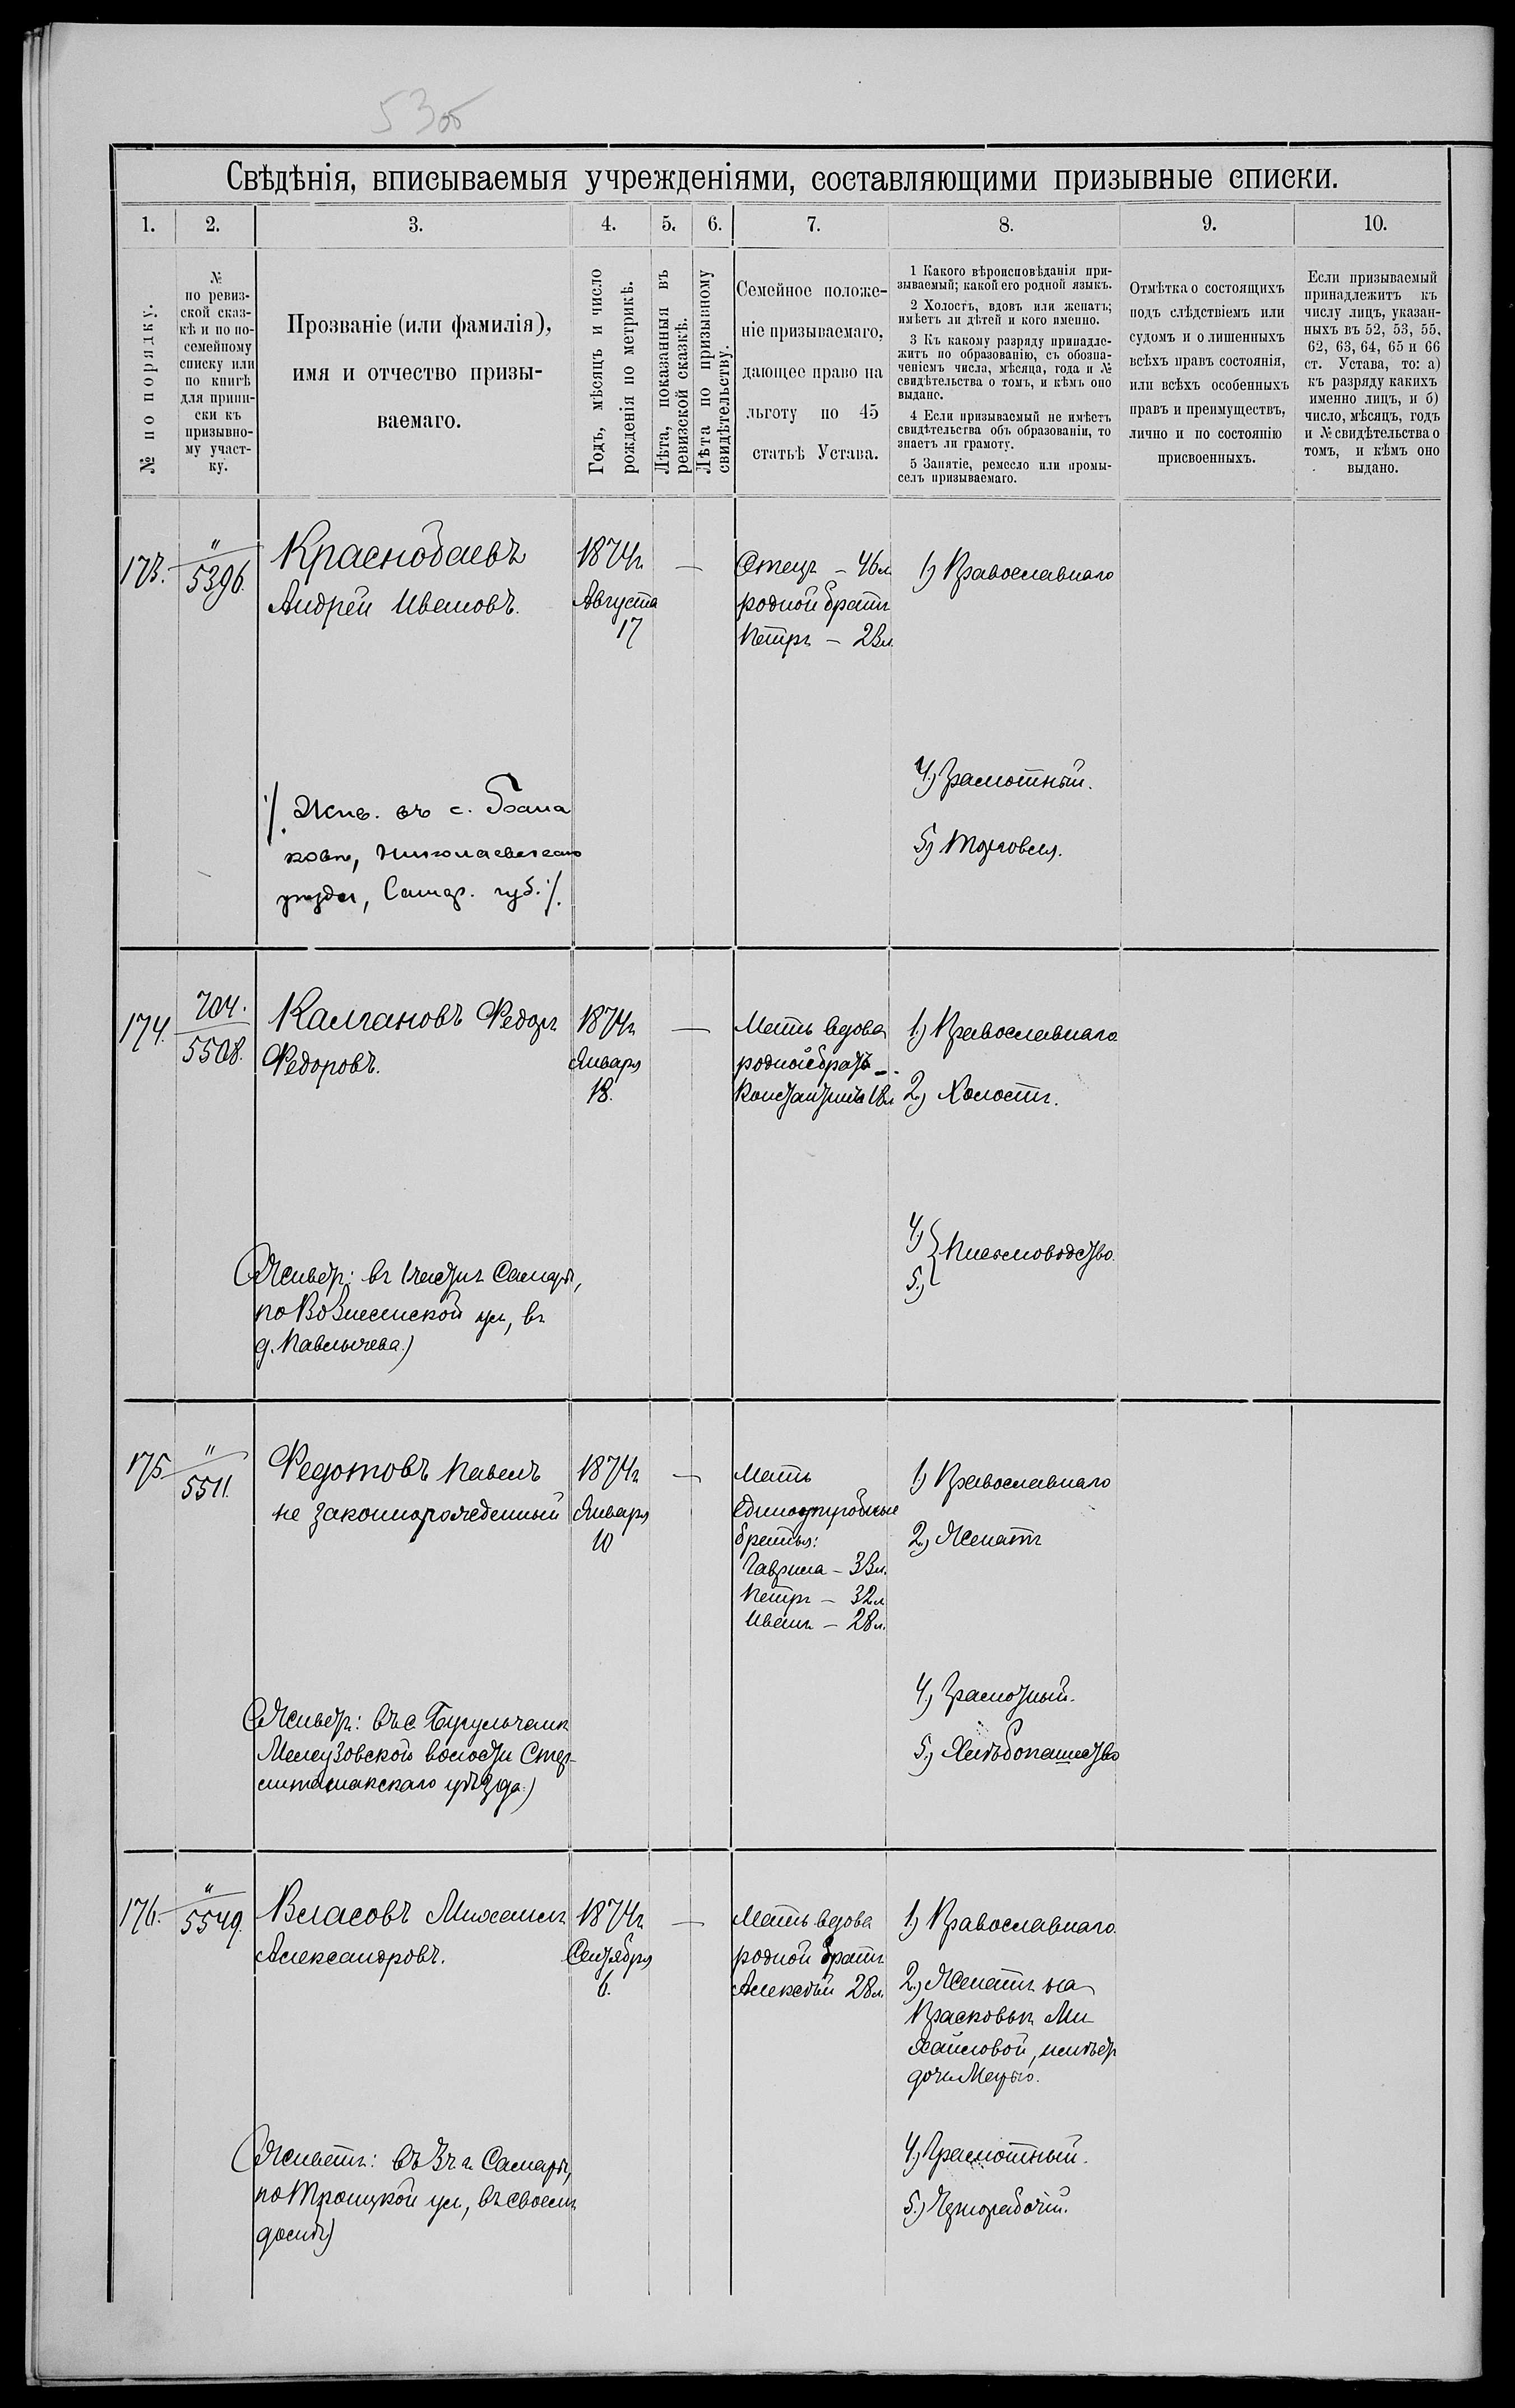 530б
Свѣдѣнія, вписываемыя учрежденіями, составляющими призывные списки.
1. 2. 3. 4. 5. 6. 7. 8. 9. 10.
№ по порядку.
№
по ревиз-
ской сказ-
кѣ и по по-
семейному
списку или
по книгѣ
для припи-
ски къ
призывно-
му участ-
ку.
Прозваніе (или фамилія),
имя и отчество призы-
ваемаго.
Годъ, мѣсяцъ и число
рожденія по метрикѣ.
Лѣта, показанныя въ
ревизской сказкѣ.
Лѣта по призывному
свидѣтельству.
Семейное положе-
ніе призываемаго,
дающее право на
льготу по 45
статьѣ Устава.
1 Какого вѣроисповѣданія при-
зываемый; какой его родной языкъ.
2 Холостъ, вдовъ или женатъ;
имѣетъ ли дѣтей и кого именно.
3 Къ какому разряду принадле-
житъ по образованію, съ обозна-
ченіемъ числа, мѣсяца, года и №
свидѣтельства о томъ, и кѣмъ оно
выдано.
4 Если призываемый не имѣетъ
свидѣтельства объ образованіи, то
знаетъ ли грамоту.
5 Занятіе, ремесло или промы-
селъ призываемаго.
Отмѣтка о состоящихъ
подъ слѣдствіемъ или
судомъ и о лишенныхъ
всѣхъ правъ состоянія,
или всѣхъ особенныхъ
правъ и преимуществъ,
лично и по состоянію
присвоенныхъ.
Если призываемый
принадлежитъ къ
числу лицъ, указан-
ныхъ въ 52, 53, 55,
62, 63, 64, 65 и 66
ст. Устава, то: а)
къ разряду какихъ
именно лицъ, и б)
число, мѣсяцъ, годъ
и № свидѣтельства о
томъ, и кѣмъ оно
выдано.
173.
"
5396.
Краснобаевъ
Андрей Ивановъ.
1874г.
Августа
17
—
Отецъ – 46л
родной братъ
Петръ – 23л.
1) Православнаго
4) Грамотный.
5) Торговля.
/. Жив. въ с. Бала
ковѣ, Николаевскаго
уѣзда, Самар. губ. /.
174.
704.
5508.
Калгановъ Федоръ
Федоровъ.
1874г.
Января
18.
—
Мать вдова
родной братъ –
Константинъ 18л
1.) Православнаго
2.) Холостъ.
4.)
5.)
(Живетъ: въ 1 части г. Самары,
по Вознесенской ул, въ
д. Павлычева.)
175
"
5511.
Федотовъ Павелъ
не законнорожденный
1874г.
Января
10
—
Мать
Единоутробные
братья:
Гаврила – 33л.
Петръ – 32л
Иванъ – 28л.
1) Православнаго
2.) Женатъ
4.) Грамотный.
5.) Хлѣбопашество
(Живетъ: въ с. Бугульчанѣ
Мелеузовской волости Стер-
литамакскаго уѣзда.)
176.
"
5549.
Власовъ Михаилъ
Александровъ.
1874г.
Сентября
6.
—
Мать вдова
родной братъ
Алексѣй 28л.
1) Православнаго.
2.) Женатъ на
Прасковьѣ Ми-
хайловой, имѣетъ
дочь Марью.
4.) Грамотный.
5.) Чернорабочій.
(Живетъ: въ 3ч. г. Самары,
по Троицкой ул, въ своемъ
домѣ)